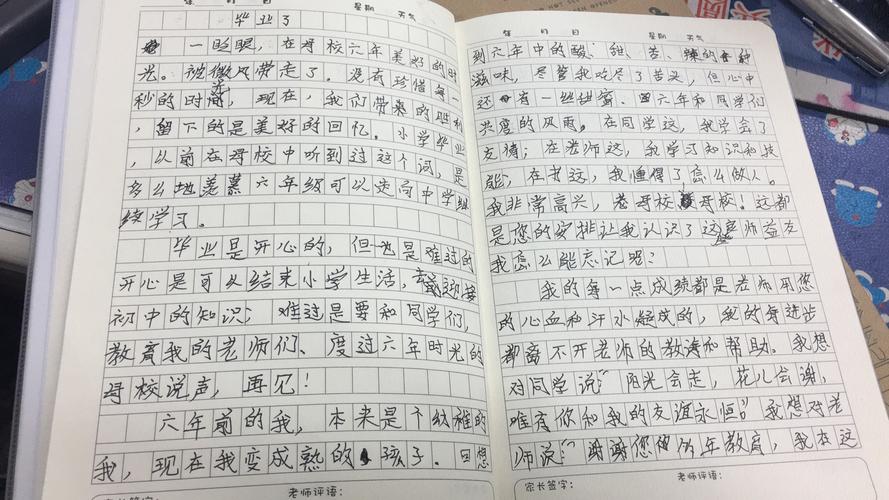 年 月 日 星期 天气
毕业了
一眨眼,在母校六年美好的时
光。被微风带走了。没有珍惜每一
秒的时间,现在,我们带来的胜利
,留下的是美好的回忆。小学毕业
,以前在母校中听到过这个词,是
多么地羡慕六年级可以走向中学继
续学习。
毕业是开心的,但也是难过的
开心是可以结束小学生活,去迎接
初中的知识;难过是要和同学们,
教育我的老师们、度过六年时光的
母校说声,再见!
六年前的我,本来是个幼稚的
我,现在我变成熟的孩子.回想
家长签字: 老师评语:
年 月 日 星期 天气
到六年中的酸、甜、苦、辣的各种
滋味,尽管我吃尽了苦头,但心中
还有一丝甜蜜。六年和同学们
共度的风雨。在同学这,我学会了
友情;在老师这,我学习知识和技
能;在书这,我懂得了怎么做人。
我非常高兴,老母校母校!这都
是您的安排让我认识了这良师益友
我怎么能忘记呢?
我的每一点成绩都是老师用您
的心血和汗水凝成的,我的每进步
都离不开老师的教海和帮助。我想
对同学说“阳光会走,花儿会谢,
唯有你和我的友谊永恒”我想对老
师说:“谢谢您的多年教育,我在这
家长签字: 老师评语: